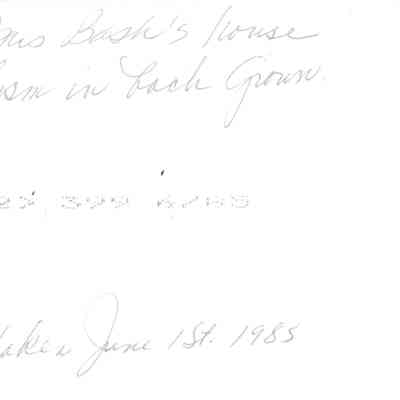 Mrs Bash's house
ism in back Groun
Taken June 1St. 1985